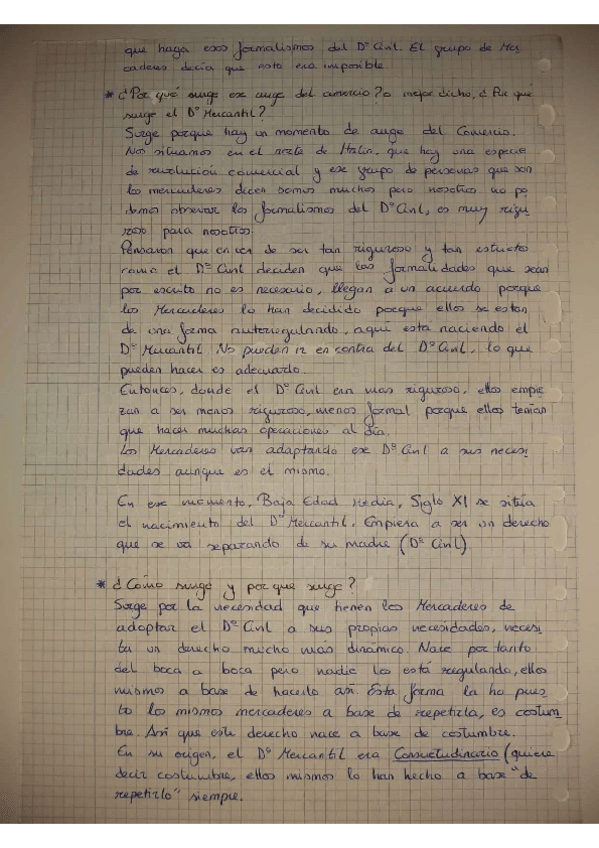 que haga esos formalismos del Dº Civil. El grupo de Mer
caderes decía que esto era imposible.
* ¿Por qué surge ese auge del comercio? o mejor dicho, ¿Por que
surge el Dº Mercantil?
Surge porque hay un momento de auge del Comercio.
Nos situamos en el norte de Italia, que hay una especie
de revolución comercial y ese grupo de personas que son
los mercaderes dicen somos muchos pero nosotros no po
demos observar los formalismos del Dº Civil, es muy rigu
roso para nosotros.
Pensaron que en vez de ser tan riguroso y tan estricto
como el Dº Civil deciden que las formalidades que sean
por escrito no es necesario, llegan a un acuerdo porque
los Mercaderes lo han decidido porque ellos se estan
de una forma autorregulando, aqui esta naciendo el
Dº Mercantil. No pueden ir en contra del Dº Civil, lo que
pueden hacer es adecuarlo.
Entonces, donde el Dº Civil era mas riguroso, ellos empie
zan a ser menos riguroso, menos formal porque ellos tenian
que hacer muchas operaciones al día.
Los Mercaderes van adaptando ese Dº Civil a sus necesi
dades aunque es el mismo.
En ese momento, Baja Edad Media, Siglo XI se sitúa
el nacimiento del Dº Mercantil. Empieza a ser un derecho
que se va separando de su madre (Dº Civil)
* ¿Cómo surge y por que surge?
Surge por la necesidad que tienen los Mercaderes de
adoptar el Dº Civil a sus propias necesidades, necesi
ta un derecho mucho más dinámico. Nace por tanto
del boca a boca pero nadie los está regulando, ellos
mismos a base de hacerlo asi. Esta forma la ha pues
to los mismos mercaderes a base de repetirla, es costum
bre. Asi que este derecho nace a base de costumbre.
En su origen, el Dº Mercantil era Consuetudinario (quiere
decir costumbre, ellos mismos lo han hecho a base "de
repetirlo" siempre.